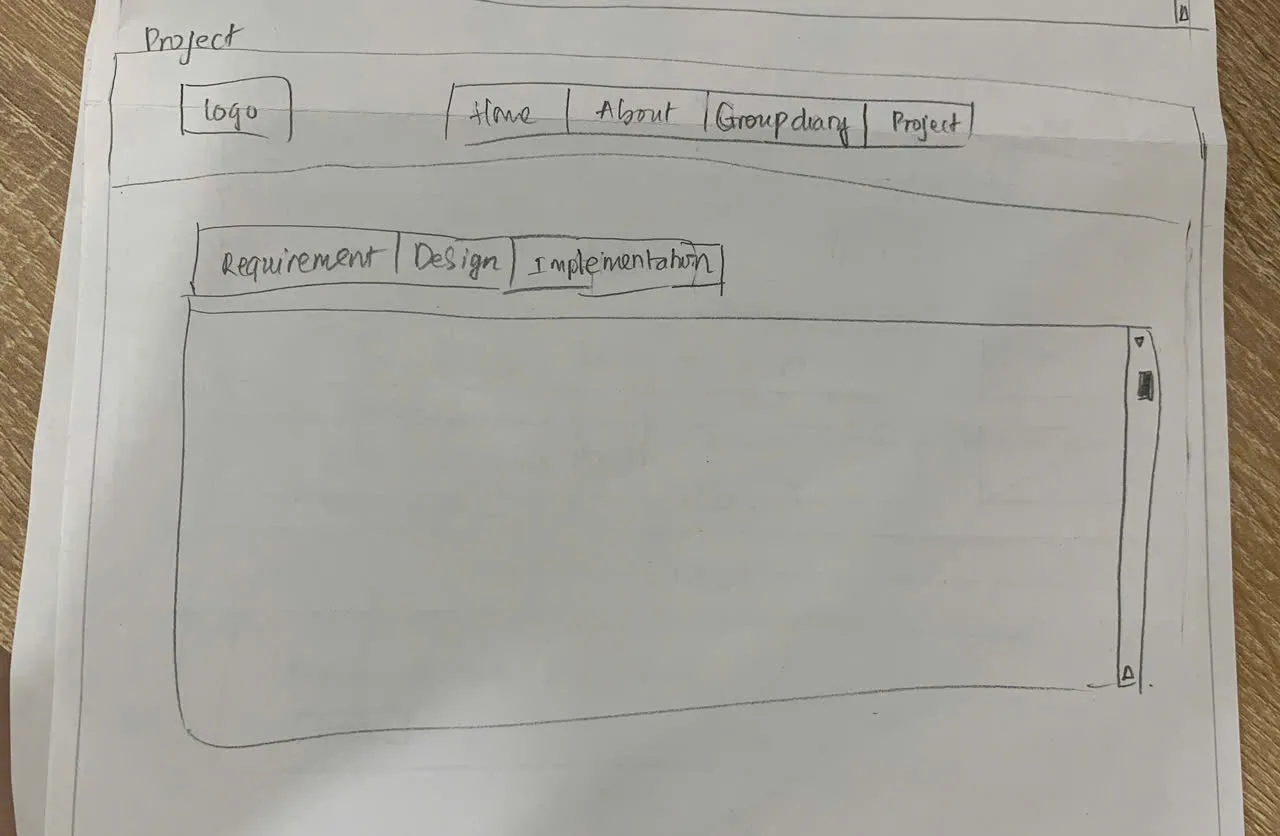 Project
logo Home About Groupdiary Project
Requirement Design Implementation